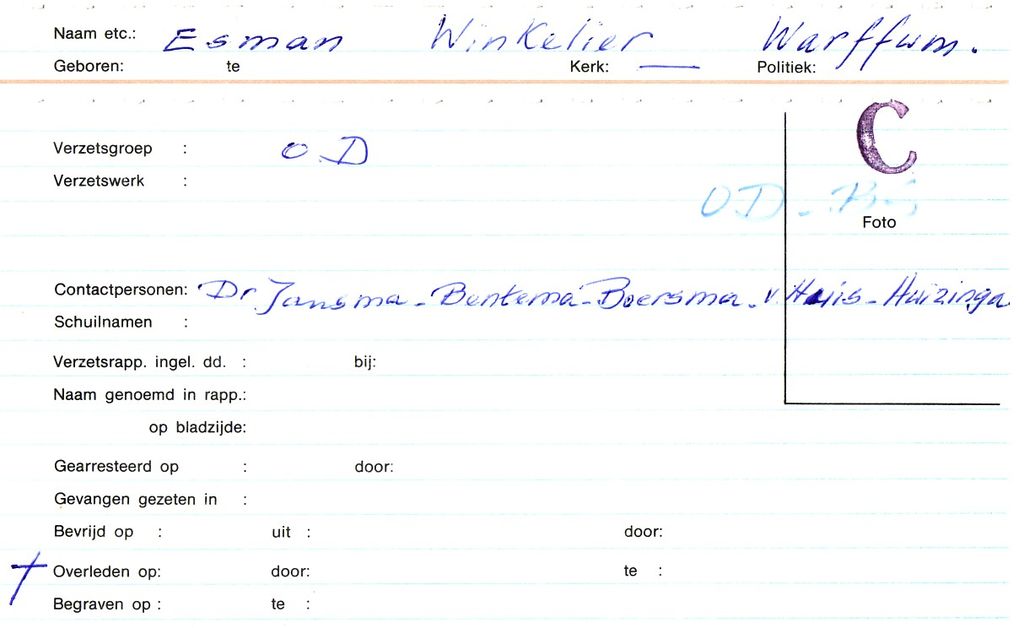 Naam etc.: Esman Winkelier Warffum.
Geboren: te Kerk: — Politiek:
C
Verzetsgroep : O.D
Verzetswerk :
OD -
Foto
Contactpersonen: Dr Jansma - Bentema - Boersma - v. Huis - Huizinga
Schuilnamen :
Verzetsrapp. ingel. dd. : bij:
Naam genoemd in rapp.:
op bladzijde:
Gearresteerd op : door:
Gevangen gezeten in :
Bevrijd op : uit : door:
† Overleden op: door: te :
Begraven op : te :